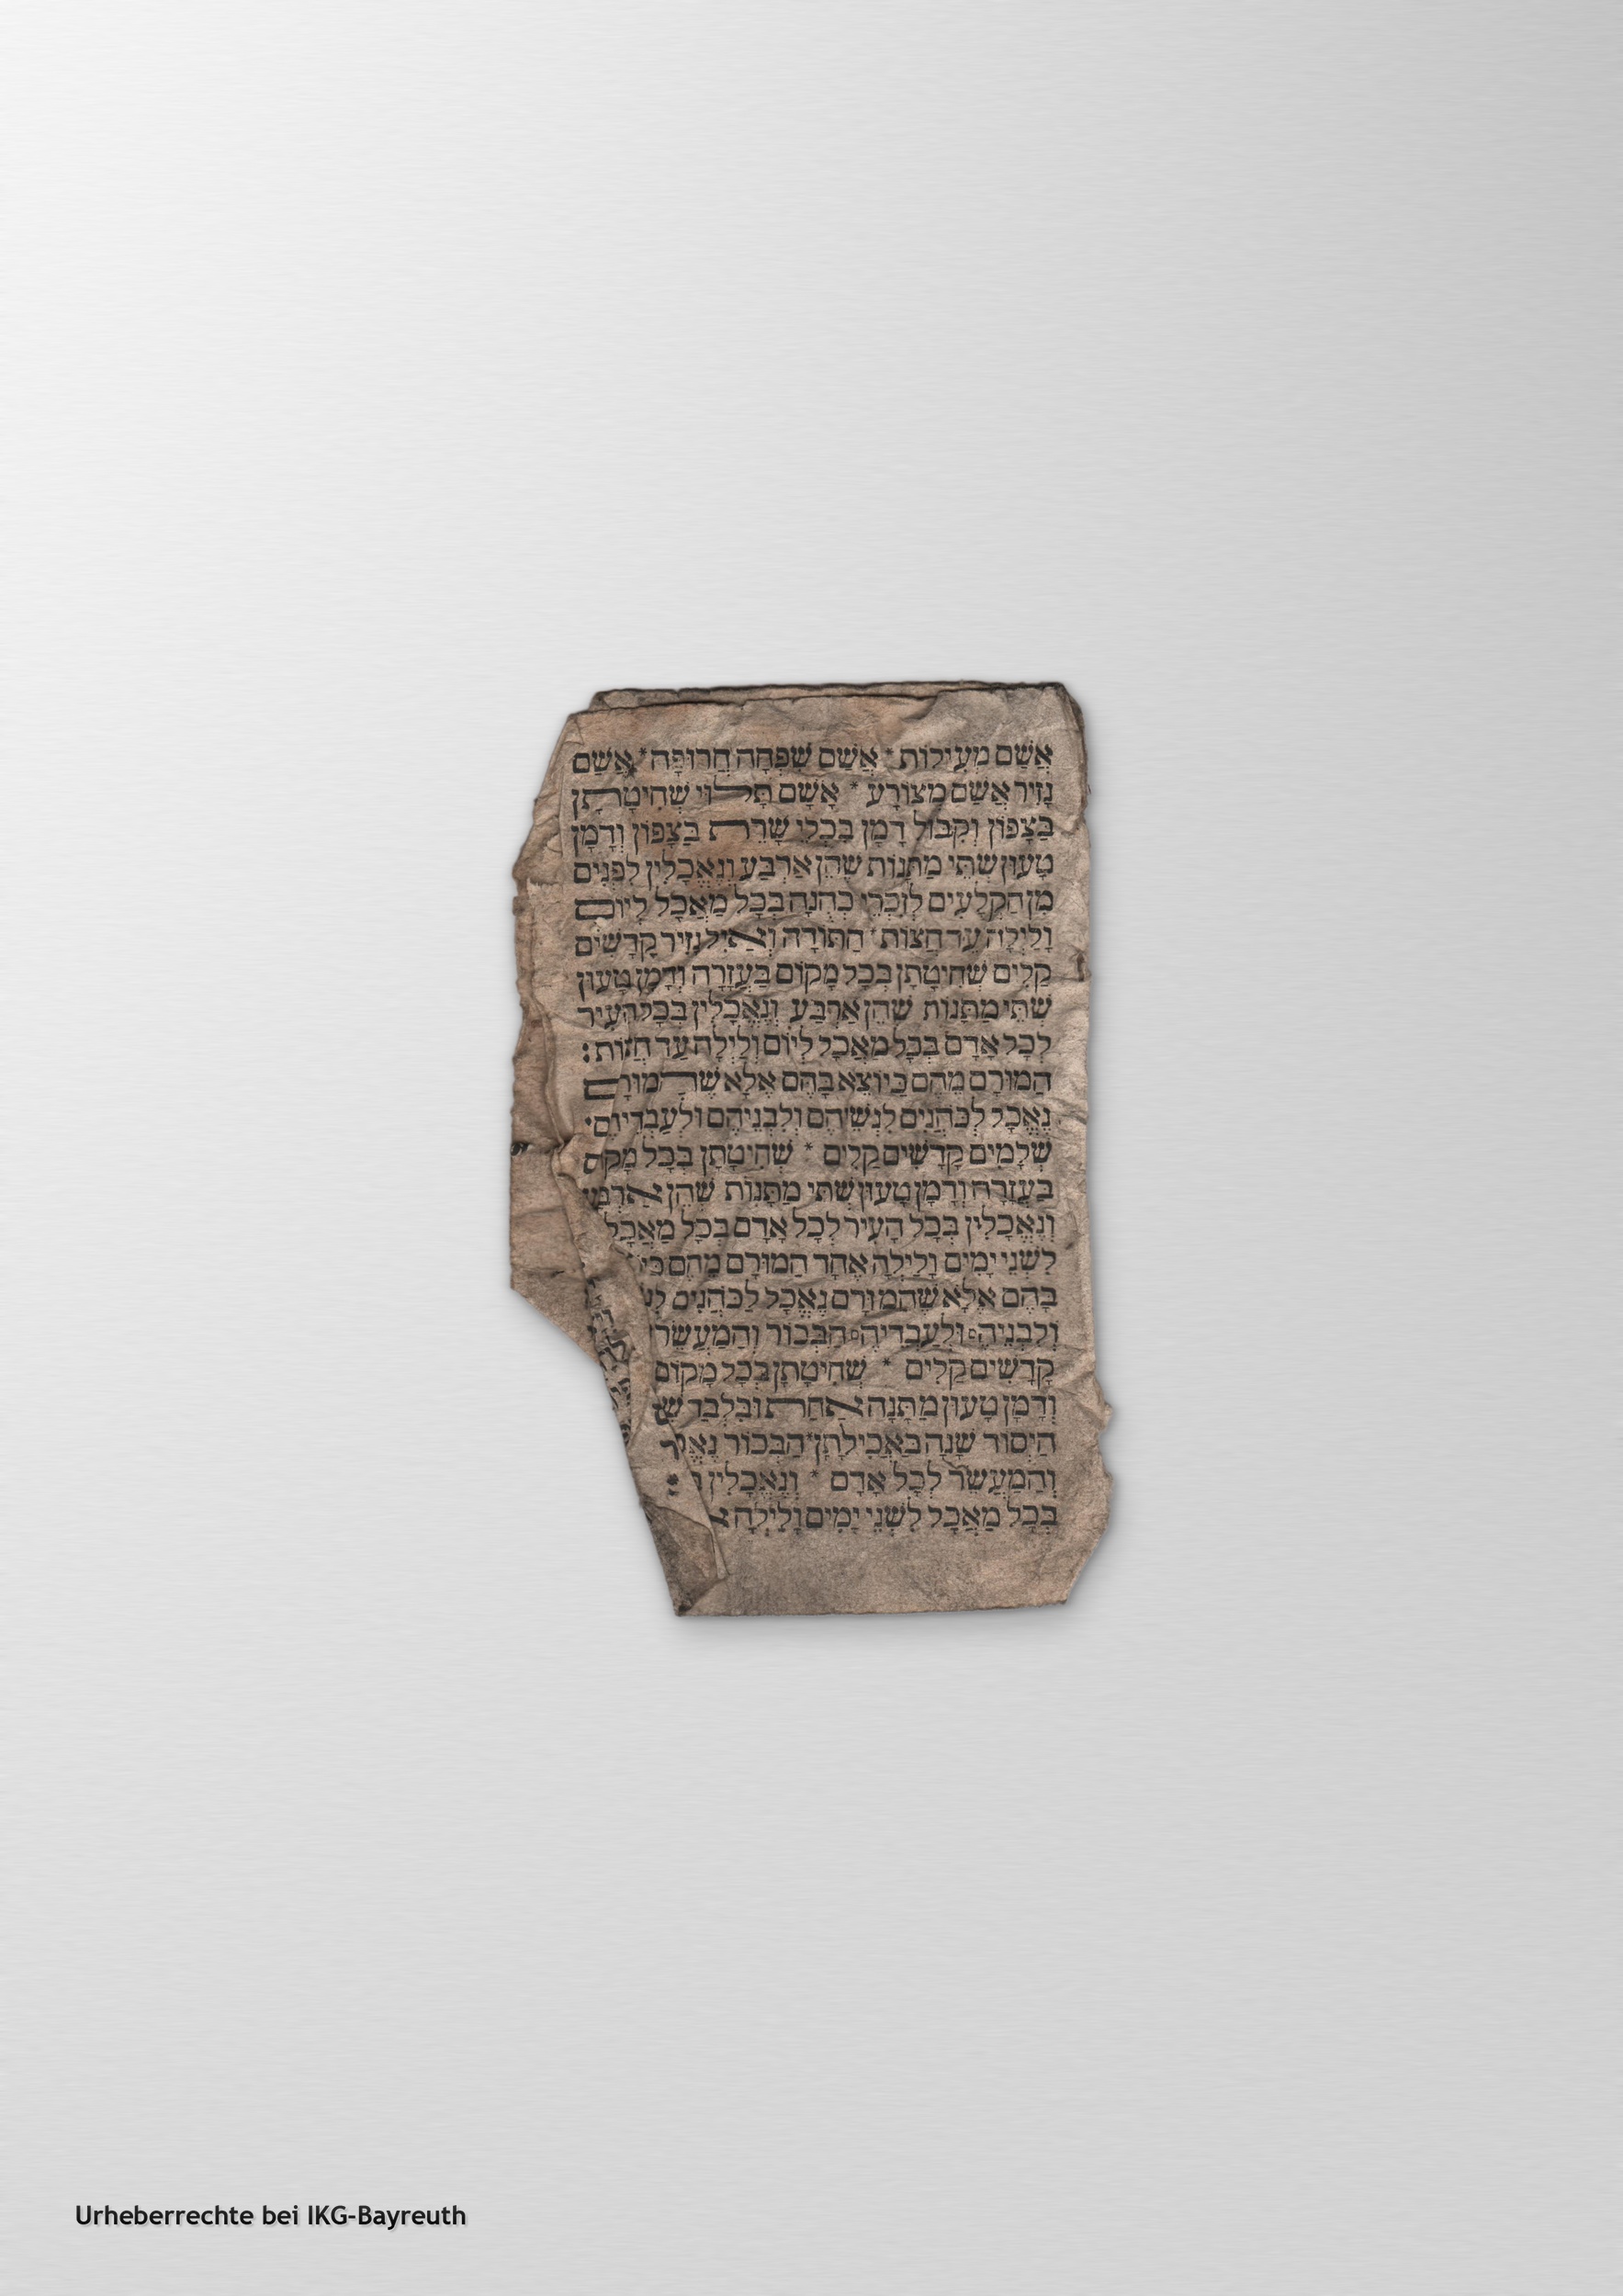 אֲשַׁם מְעִילוֹת * אֲשַׁם שִׁפְחָה חֲרוּפָה * אֲשַׁם
נָזִיר אֲשַׁם מְצוֹרָע * אָשָׁם תָּלוּי שְׁחִיטָתָן
בַּצָּפוֹן וְקִבּוּל דָּמָן בִּכְלֵי שָׁרֵת בַּצָּפוֹן וְדָמָן
טָעוּן שְׁתֵּי מַתָּנוֹת שֶׁהֵן אַרְבַּע וְנֶאֱכָלִין לִפְנִים
מִן הַקְּלָעִים לְזִכְרֵי כְהֻנָּה בְּכָל מַאֲכָל לְיוֹם
וָלַיְלָה עַד חֲצוֹת * הַתּוֹדָה וְאֵיל נָזִיר קָדָשִׁים
קַלִּים שְׁחִיטָתָן בְּכָל מָקוֹם בָּעֲזָרָה וְדָמָן טָעוּן
שְׁתֵּי מַתָּנוֹת שֶׁהֵן אַרְבַּע וְנֶאֱכָלִין בְּכָל הָעִיר
לְכָל אָדָם בְּכָל מַאֲכָל לְיוֹם וָלַיְלָה עַד חֲצוֹת :
הַמּוּרָם מֵהֶם כַּיּוֹצֵא בָהֶם אֶלָּא שֶׁהַמּוּרָם
נֶאֱכָל לַכֹּהֲנִים לִנְשֵׁיהֶם וְלִבְנֵיהֶם וּלְעַבְדֵיהֶם :
שְׁלָמִים קָדָשִׁים קַלִּים * שְׁחִיטָתָן בְּכָל מָקוֹם
בָּעֲזָרָה וְדָמָן טָעוּן שְׁתֵּי מַתָּנוֹת שֶׁהֵן אַרְבַּע
וְנֶאֱכָלִין בְּכָל הָעִיר לְכָל אָדָם בְּכָל מַאֲכָל
לִשְׁנֵי יָמִים וְלַיְלָה אֶחָד הַמּוּרָם מֵהֶם
בָּהֶם אֶלָּא שֶׁהַמּוּרָם נֶאֱכָל לַכֹּהֲנִים
וְלִבְנֵיהֶם וּלְעַבְדֵיהֶם הַבְּכוֹר וְהַמַּעֲשֵׂר
קָדָשִׁים קַלִּים * שְׁחִיטָתָן בְּכָל מָקוֹם
וְדָמָן טָעוּן מַתָּנָה אַחַת וּבִלְבַד
הַיְסוֹד שִׁנָּה בַאֲכִילָתָן * הַבְּכוֹר
וְהַמַּעֲשֵׂר לְכָל אָדָם * וְנֶאֱכָלִין
בְּכָל מַאֲכָל לִשְׁנֵי יָמִים וְלַיְלָה
Urheberrechte bei IKG-Bayreuth